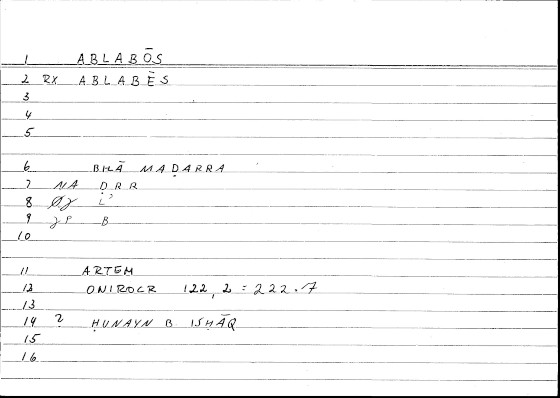 1 ABLABŌS
2 RX ABLABĒS
3
4
5
6 BHĀ MAḌARRA
7 NA ḌRR
8 L'
9 B
10
11 ARTEM
12 ONIROCR 122,2 = 222.7
13
14 ? ḤUNAYN B ISḤĀQ
15
16